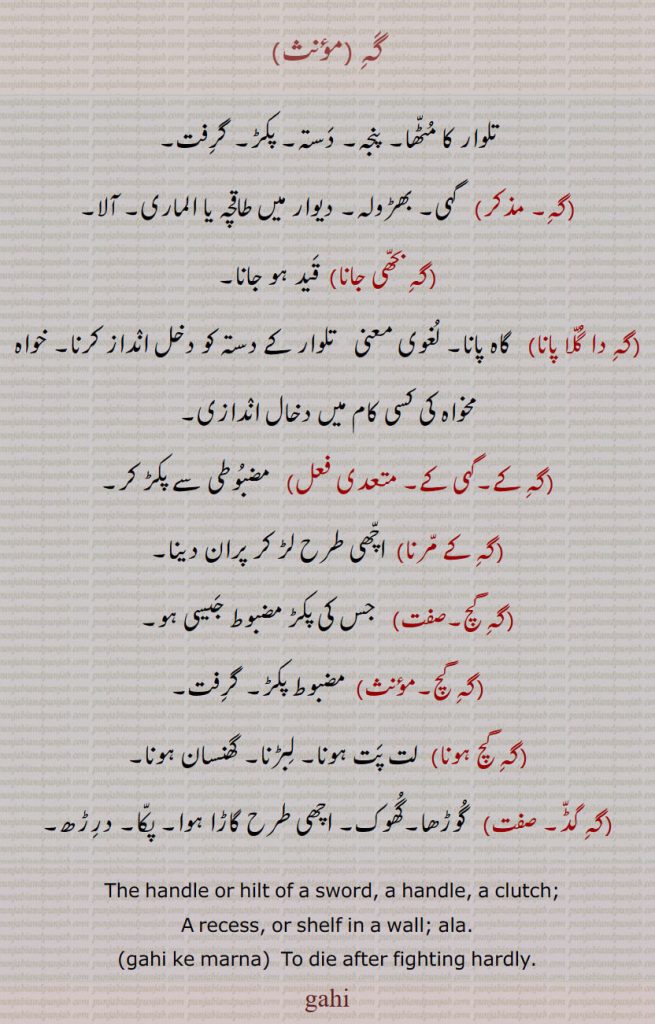 گَہِ (مؤنث)
تلوار کا مُٹّھا۔ پنجہ۔ دَستہ۔ پکڑ۔ گرِفت۔
(گہِ۔ مذکر) گہی۔ بھڑولہ۔ دیوار میں طاقچہ یا الماری۔ آلا۔
(گہِ بجّھی جانا) قَید ہو جانا۔
(گہِ دا گُلّا پانا) گاہ پانا۔ لُغوی معنی تلوار کے دستہ کو دخل انْداز کرنا۔ خواہ
مخواہ کی کسی کام میں دخال انْدازی۔
(گہِ کے۔گہی کے۔ متعدی فعل) مضبُوطی سے پکڑ کر۔
(گہِ کے مّرنا) اچّھی طرح لڑ کر پران دینا۔
(گہِ گچ۔صفت) جس کی پکڑ مضبوط جَیسی ہو۔
(گہِ گچ۔مؤنث) مضبوط پکڑ۔ گرِفت۔
(گہِ گچ ہونا) لت پَت ہونا۔ لِبڑنا۔ گھنسان ہونا۔
(گہِ گڈّ۔ صفت) گُوڑھا۔گُھوک۔ اچھی طرح گاڑا ہوا۔ پکّا۔ درِڑھ۔
The handle or hilt of a sword, a handle, a clutch;
A recess, or shelf in a wall; ala.
(gahi ke marna) To die after fighting hardly.
gahi